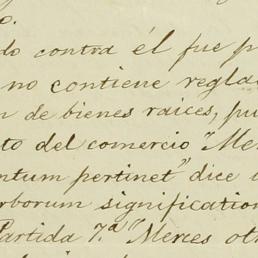 do contra él fue p
no contiene regla
n de bienes raices, pu
to del comercio "Me
ntum pertinet" dice
rborum signification
Partida 7.ª "Merces ot